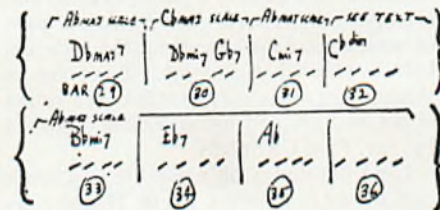 Ab MAJ SCALE Cb MAJ SCALE Ab MAJ SCALE SEE TEXT
Dbmaj7 Dbmi7 Gb7 Cmi7 Cbdim
BAR 29 30 31 32
Ab MAJ SCALE
Bbmi7 Eb7 Ab
33 34 35 36